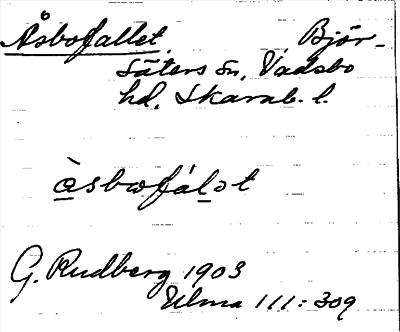 Åsbofallet, Björ-
säters sn, Vadsbo
hd, Skarab. l.
àsbωfálot
G. Rudberg 1903
Ulma 111:309